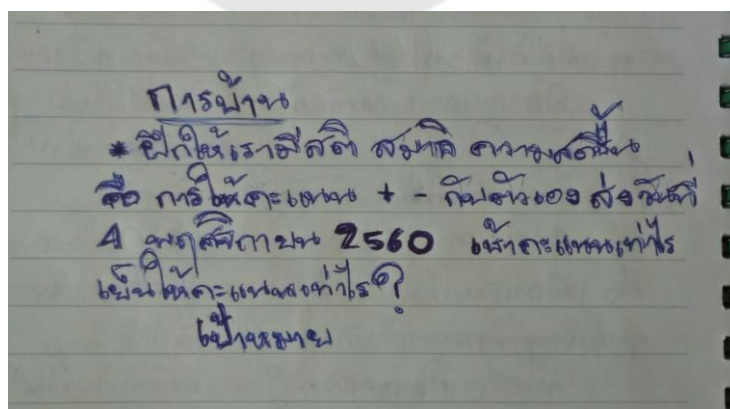 การบ้าน
* ฝึกให้เรามีสติ สมาธิ ความสดชื่น
คือ การให้คะแนน + - กับตัวเอง ส่งวันที่
4 พฤศจิกายน 2560 เช้าคะแนนเท่าไร
เย็นให้คะแนนเท่าไร?
เป้าหมาย